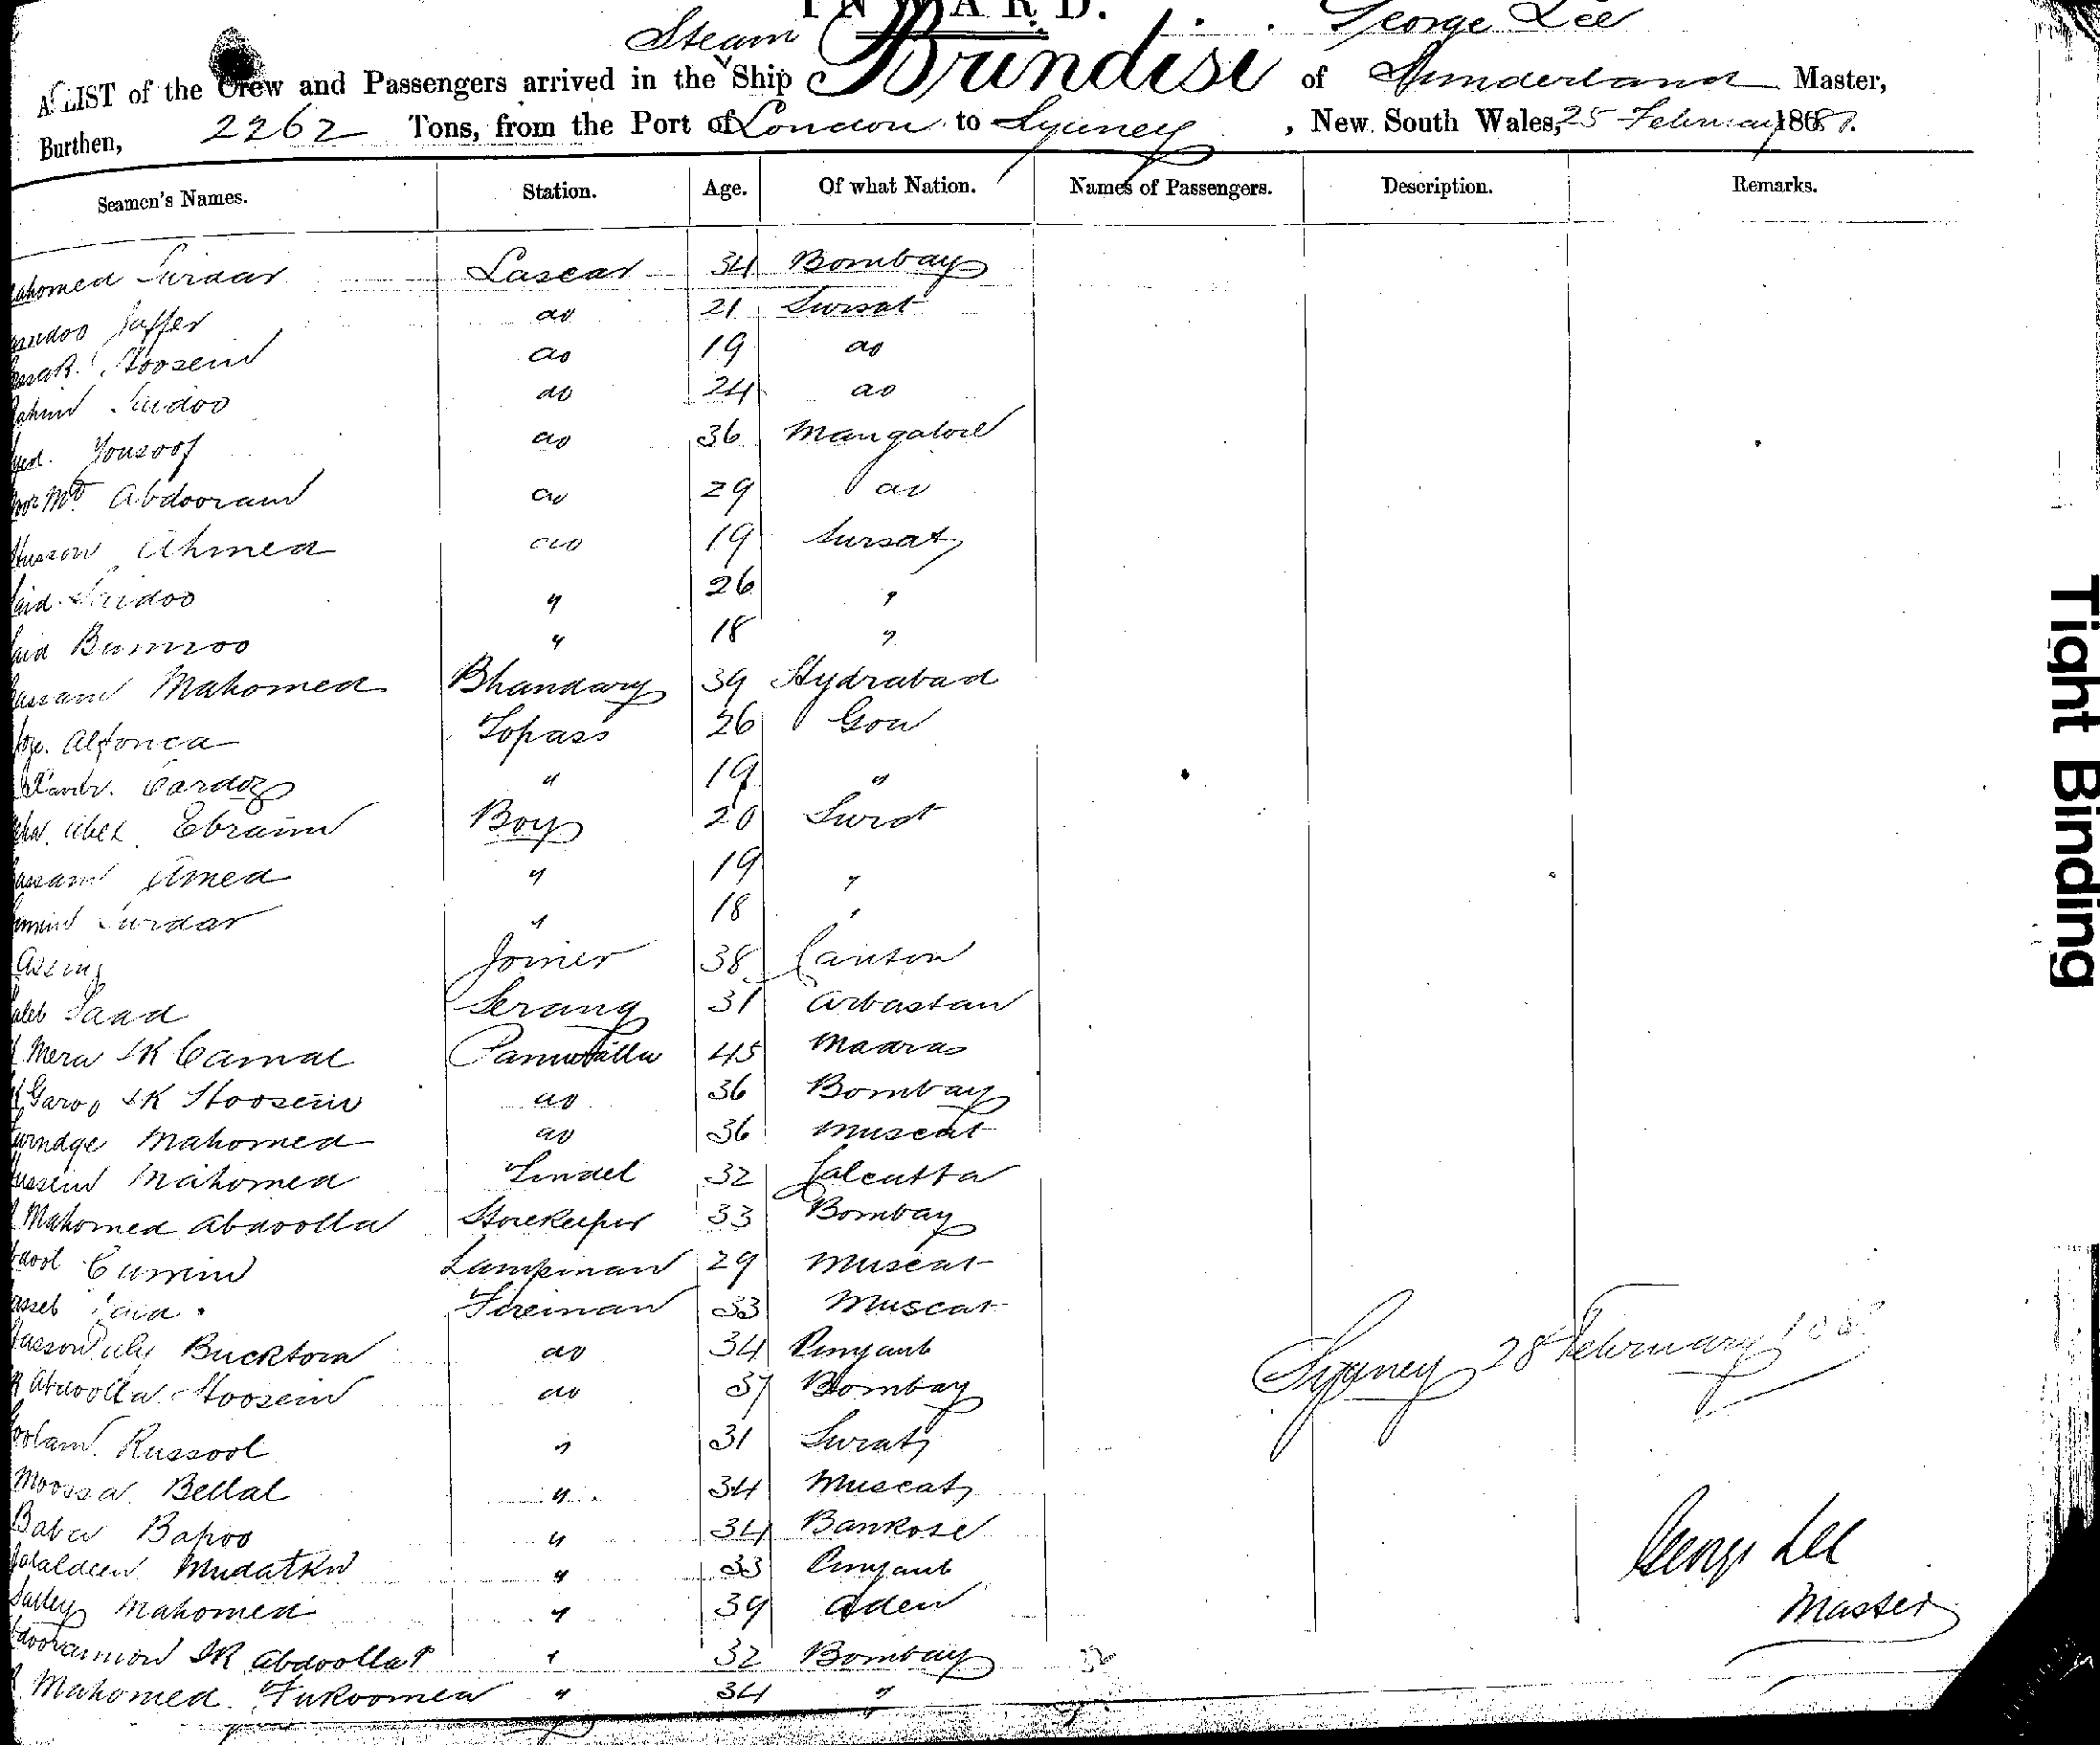 INWARD.
George Lee
A LIST of the Crew and Passengers arrived in the Steam Ship Brindisi of Sunderland Master,
Burthen, 2262 Tons, from the Port of London to Sydney, New South Wales, 25 February 188
Seamen's Names. Station. Age. Of what Nation. Names of Passengers. Description. Remarks.
ahomed Sirdar Lascar 34 Bombay
Jaffer do 21 Sursat
Hoosein do 19 do
ahim Saidoo do 24 do
yed. Yousoof do 36 Mangalore
oor Md Abdooram do 29 do
Husson Ahmed do 19 Sursat
aid Saidoo " 26 "
aid Bumroo " 18 "
assam Mahomed Bhandary 39 Hydrabad
Alfonca Topass 26 Goa
Cardoz " 19 "
Ebraim Boy 20 Surat
assam Amed " 19 "
Sirdar " 18 "
Assing Joiner 38 Canton
aleb Saad Serang 31 Arbastan
Mera SK Camal 45 Madras
Garoo SK Hoosein do 36 Bombay
Mahomed do 36 Muscat
ussein Mahomed Tindel 32 Calcutta
Mahomed Abdoolla Storekeeper 33 Bombay
dool Currim Lampman 29 Muscat
Said Fireman 33 Muscat
asson Aly Bucktora do 34 Punjaub
Abdoolla Hoosein do 37 Bombay
Sydney 28 February 188
oolam Russool " 31 Surat
Moossa Bellal " 34 Muscat
Baba Bapoo " 34 Bankose
alaldeen Mudatkn " 33 Punjaub
George Lee
Salley Mahomed " 39 Aden
Master
SK Abdoolla " 32 Bombay
Mahomed Fukoomea " 34 "
Tight Binding